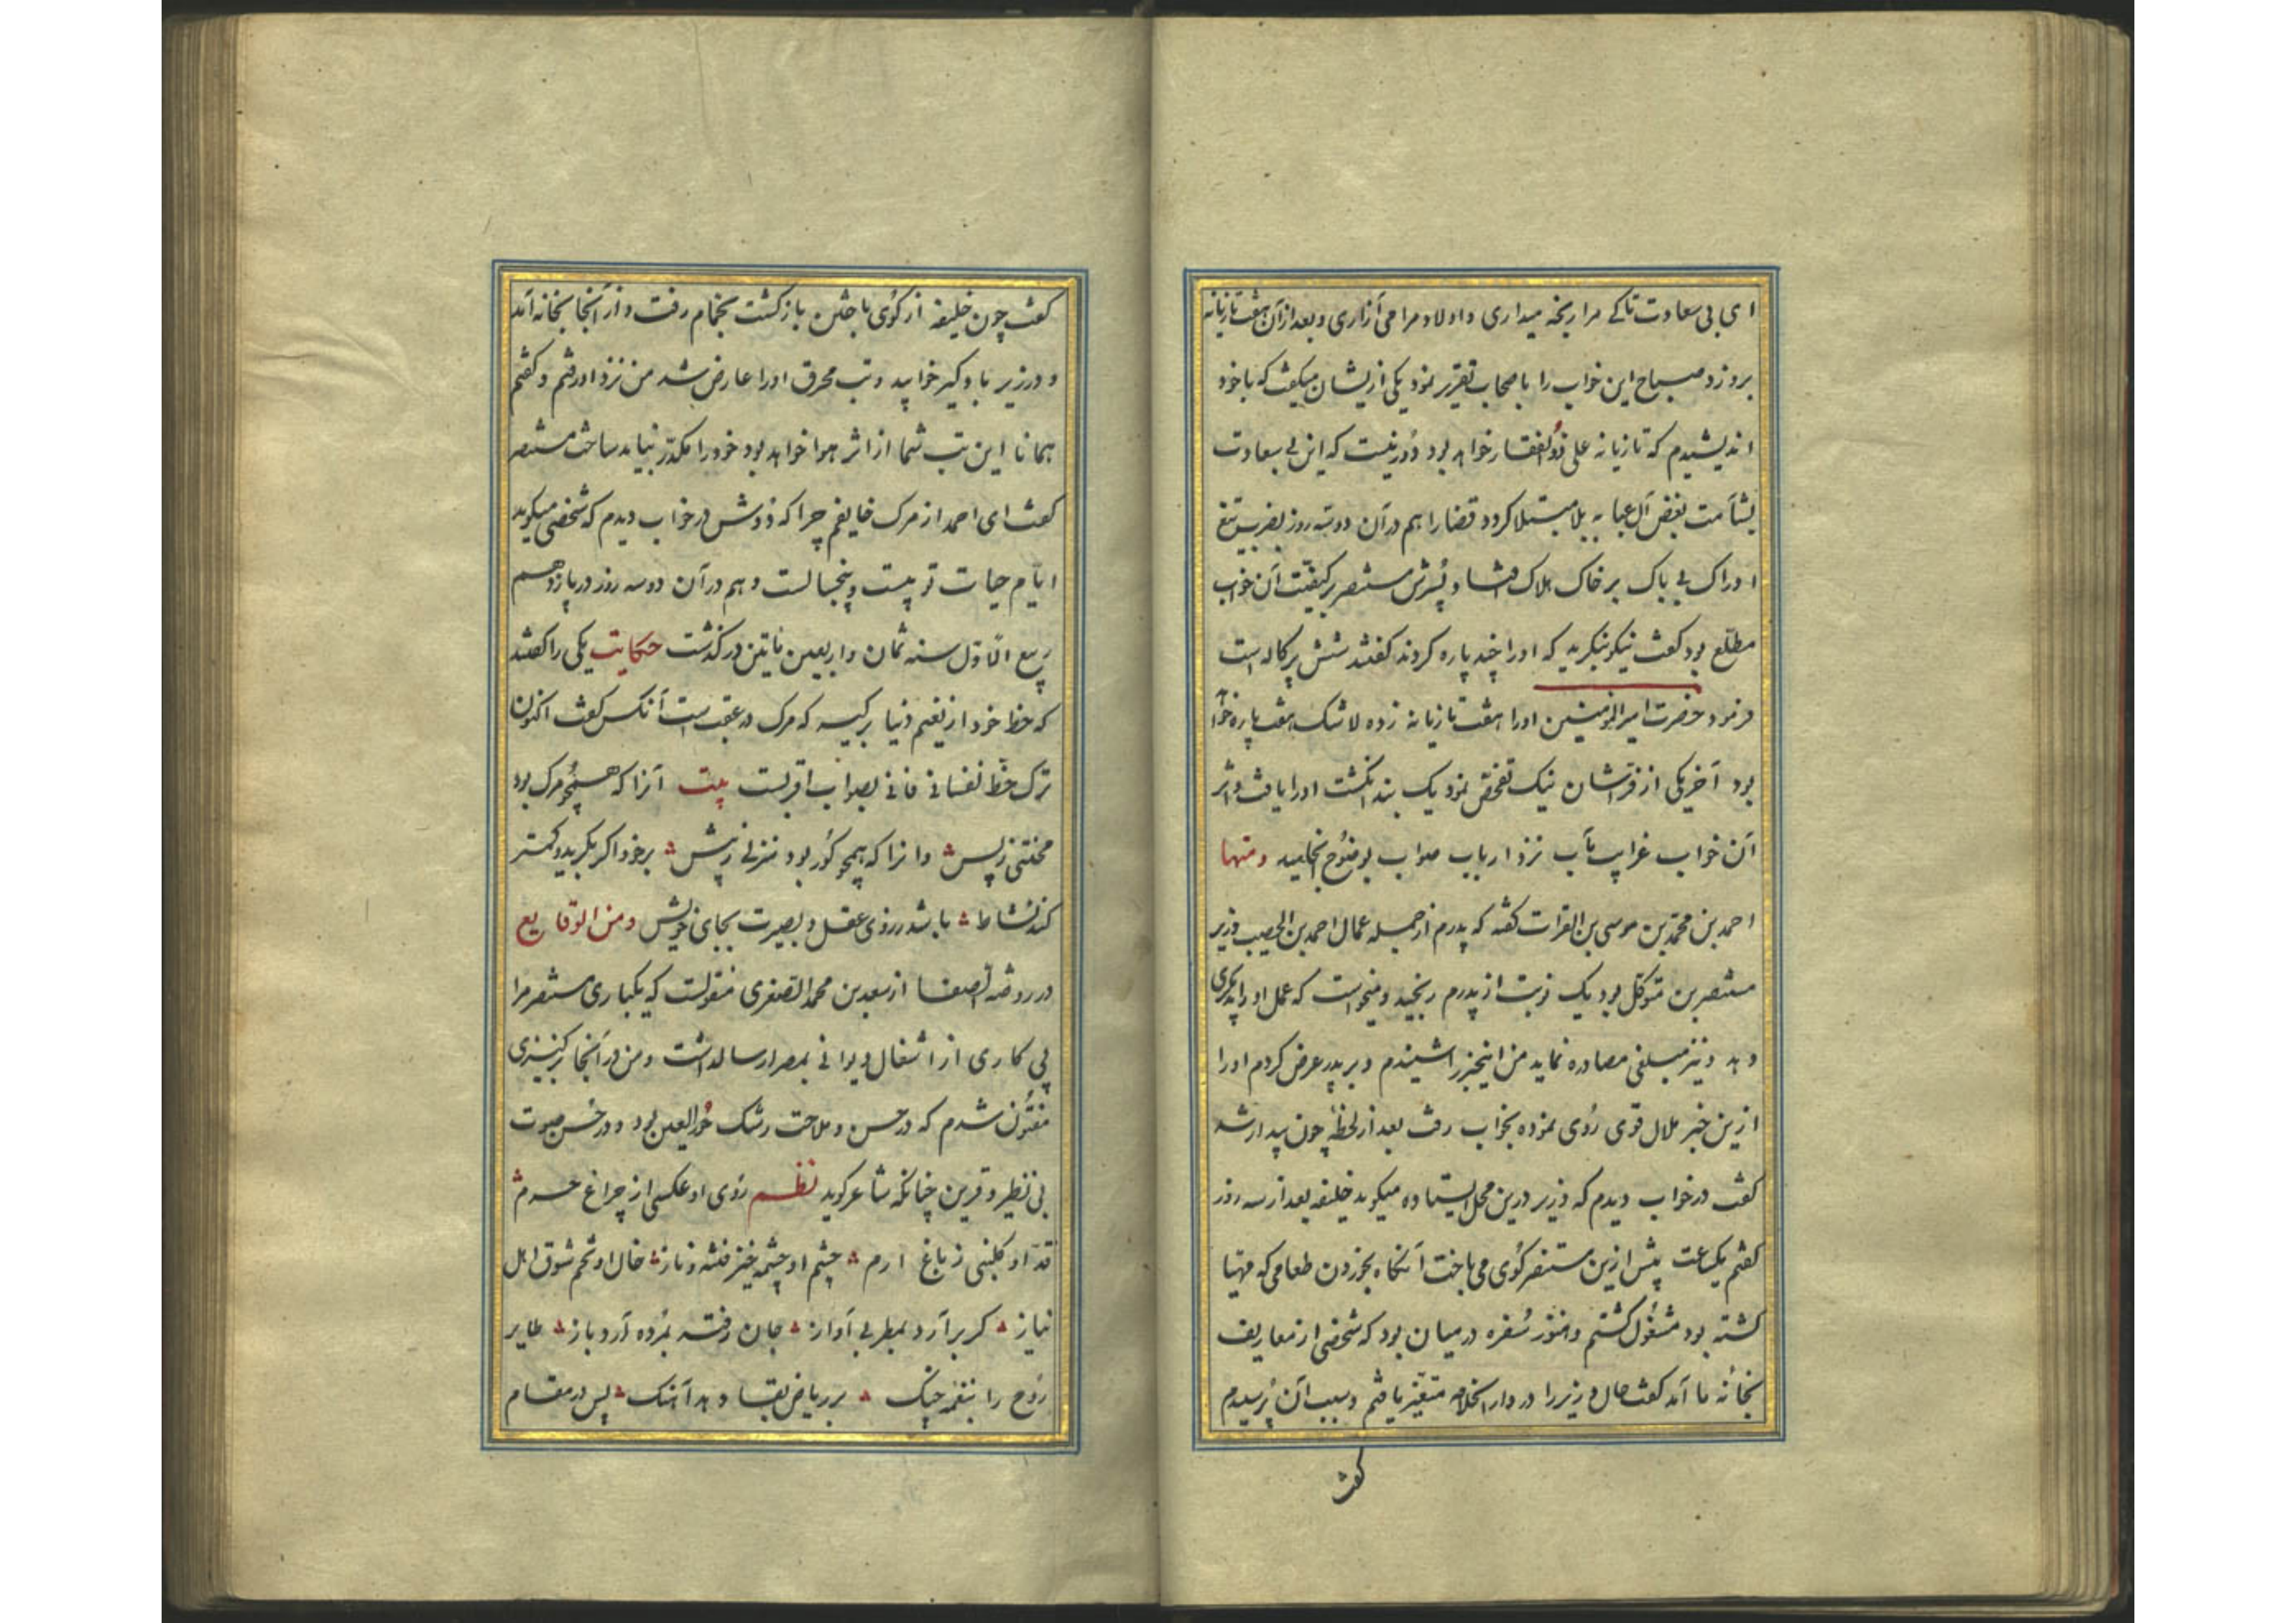 ای بی سعادت تا کے مرا رنجه میداری و اولاد مرا می آزاری و بعد از آن هفت تازیانه
بروزد صباح این خواب را باصحاب تقریر نمود یکی ازیشان میگفت که با خود
اندیشیدم که تازیانه علی ذو الفقار خواهد بود دور نیست که این بی سعادت
بشآمت بغض آل عبا به بلا مبتلا کردد قضا را هم در آن دو سه روز بضرب تیغ
اتراک بی باک بر خاک هلاک افتاد و پسرش منتصر بر کیفیّت آن خواب
مطلّع بود کفت نیکو بنکرید که او را چند پاره کردند کفتند شش پرکاله است
فرمود حضرت امیر المؤمنین او را هفت تازیانه زده لا شک هفت پاره خواهد
بود آخر یکی از فرّاشان نیک تفحّص نمود یک بند انکشت او را یافت و اثر
آن خواب غرایب مآب نزد ارباب صواب بوضوح انجامید ومنها
احمد بن محمّد بن موسی بن الفرات کفته که پدرم از جمله عمال احمد بن الخصیب وزیر
منتصر بن متوکّل بود یک نوبت از پدرم رنجید و میخواست که عمل او را بدیکری
دهد و نیز مبلغی مصادره نماید من اینخبر را شنیدم و بر پدر عرض کردم او را
ازین خبر ملال قوی رُوی نموده بخواب رفت بعد از لحظهٔ چون بیدار شد
کفت در خواب دیدم که وزیر درین محل ایستاده میکوید خلیفه بعد از سه روز
کفتم یکساعت پیش ازین منتصر کُوی می باخت آنکاه بخوردن طعامی که مهیّا
کشته بود مشغُول کشتم و هنوز سُفره در میان بود که شخصی از معاریف
بخانهٔ ما آمد کفت حال وزیر را در دار الخلافه متغیّر یافتم و سبب آن پُرسیدم
کفت
کفت چون خلیفه از کُوی باختن باز کشت بحمّام رفت و از آنجا بخانه آمد
و در زیر بادکیر خوابید و تب محرق او را عارض شد من نزد او رفتم و کفتم
همانا این تب شما از اثر هوا خواهد بود خود را مکدّر نباید ساخت منتصر
کفت ای احمد از مرک خایفم چرا که دوش در خواب دیدم که شخصی میکوید
ایّام حیات تو بیست و پنجسالست و هم در آن دو سه روز در یازدهم
ربیع الاوّل سنه ثمان و اربعین ماتین در کذشت حکایت یکی را کفتند
که حظ خود از نعیم دنیا بر کیر که مرک در عقب است آنکس کفت اکنون
ترک حظّ نفسانی فانی بصواب اقربست بیت آنرا که همچو مرک بود
محنتی ز پس وانرا که همچو کور بود منزلی ز پیش بر خود اکر بکرید و کمتر
کند نشاط باشد ز روی عقل و بصیرت بجای خویش ومن الوقایع
در روضة الصفا از سعد بن محمد الصغری منقولست که یکباری منتصر مرا
پی کاری از اشغال دیوانی بمصر ارسالداشت و من در آنجا بر کنیزی
مفتُون شدم که در حسن و ملاحت رشک حُور العین بود و در حُسن صوت
بی نظیر و قرین چنانکه شاعر کوید نظم رُوی او عکسی از چراغ حرم
قدّ او کلبنی ز باغ ارم چشم او چشمه خیز فتنه و ناز خال او تخم شوق اهل
نیاز کر بر آرد بمطربی آواز جان رفته بمُرده آرد باز طایر
رُوح را بنغمه چنک بر ریاض بقا دهد آهنک پس در مقام